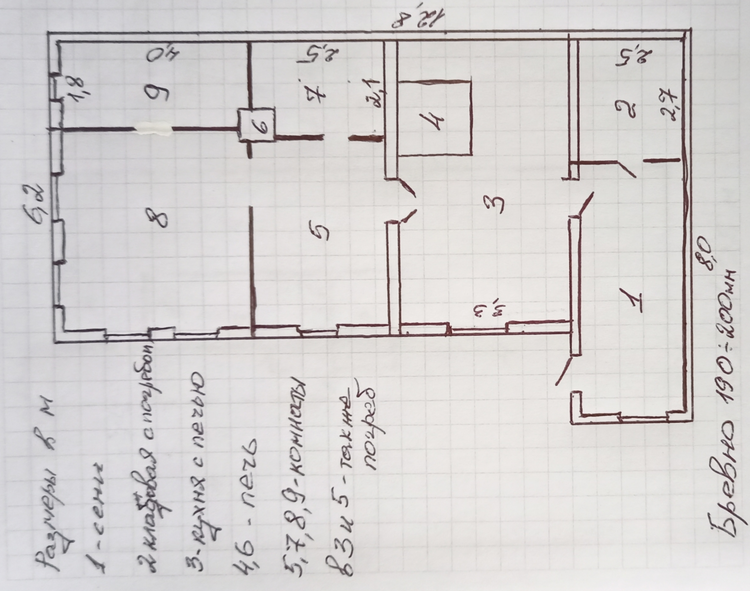 Размеры в м
1 - сени
2 кладовая с погребом
3 - кухня с печью
4,6 - печь
5,7,8,9 - комнаты
в 3 и 5 - также
погреб
6,2
1,8
4,0
9
8
6
2,5
7
2,1
5
12,8
4
3
3,3
2,5
2
2,7
1
8,0
Бревно 190÷200мм